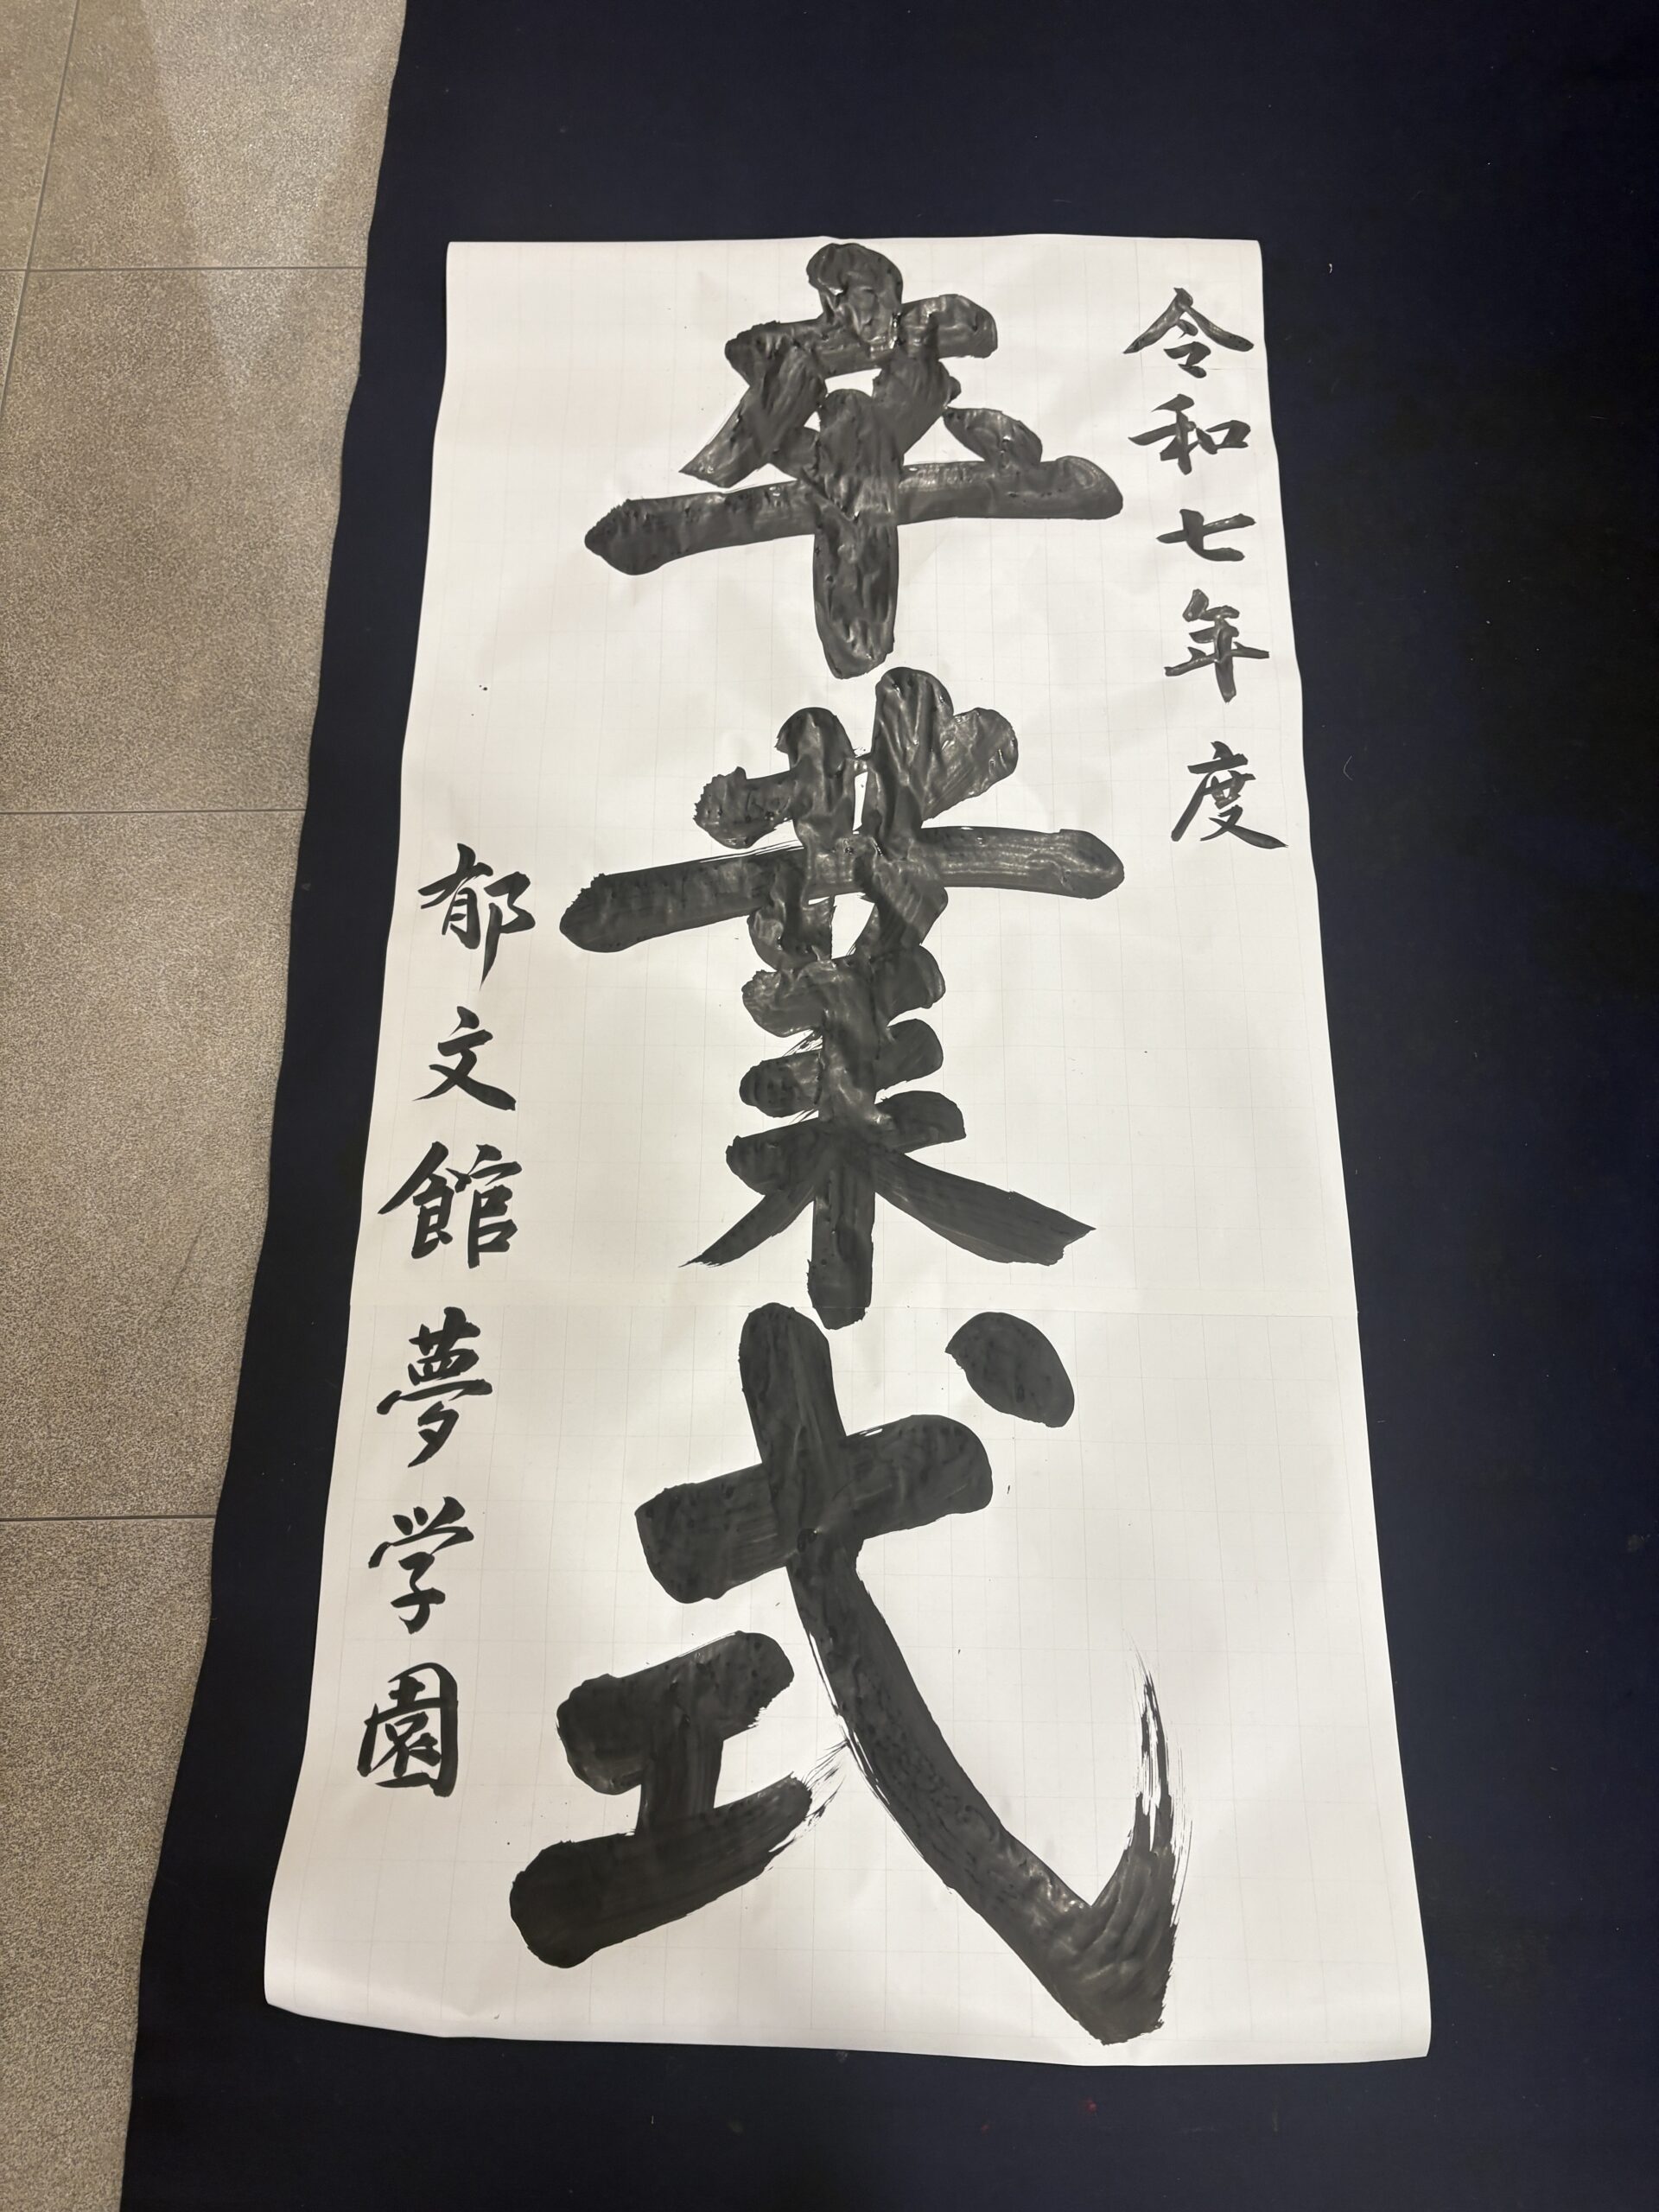 令和七年度
卒業式
郁文館夢学園